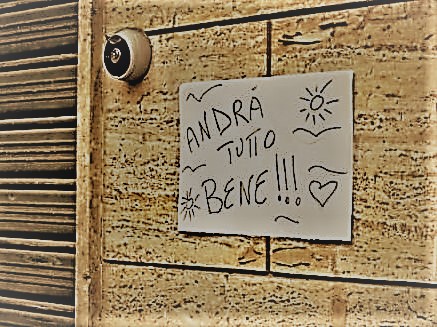 ANDRÁ
TUTTO
BENE!!!